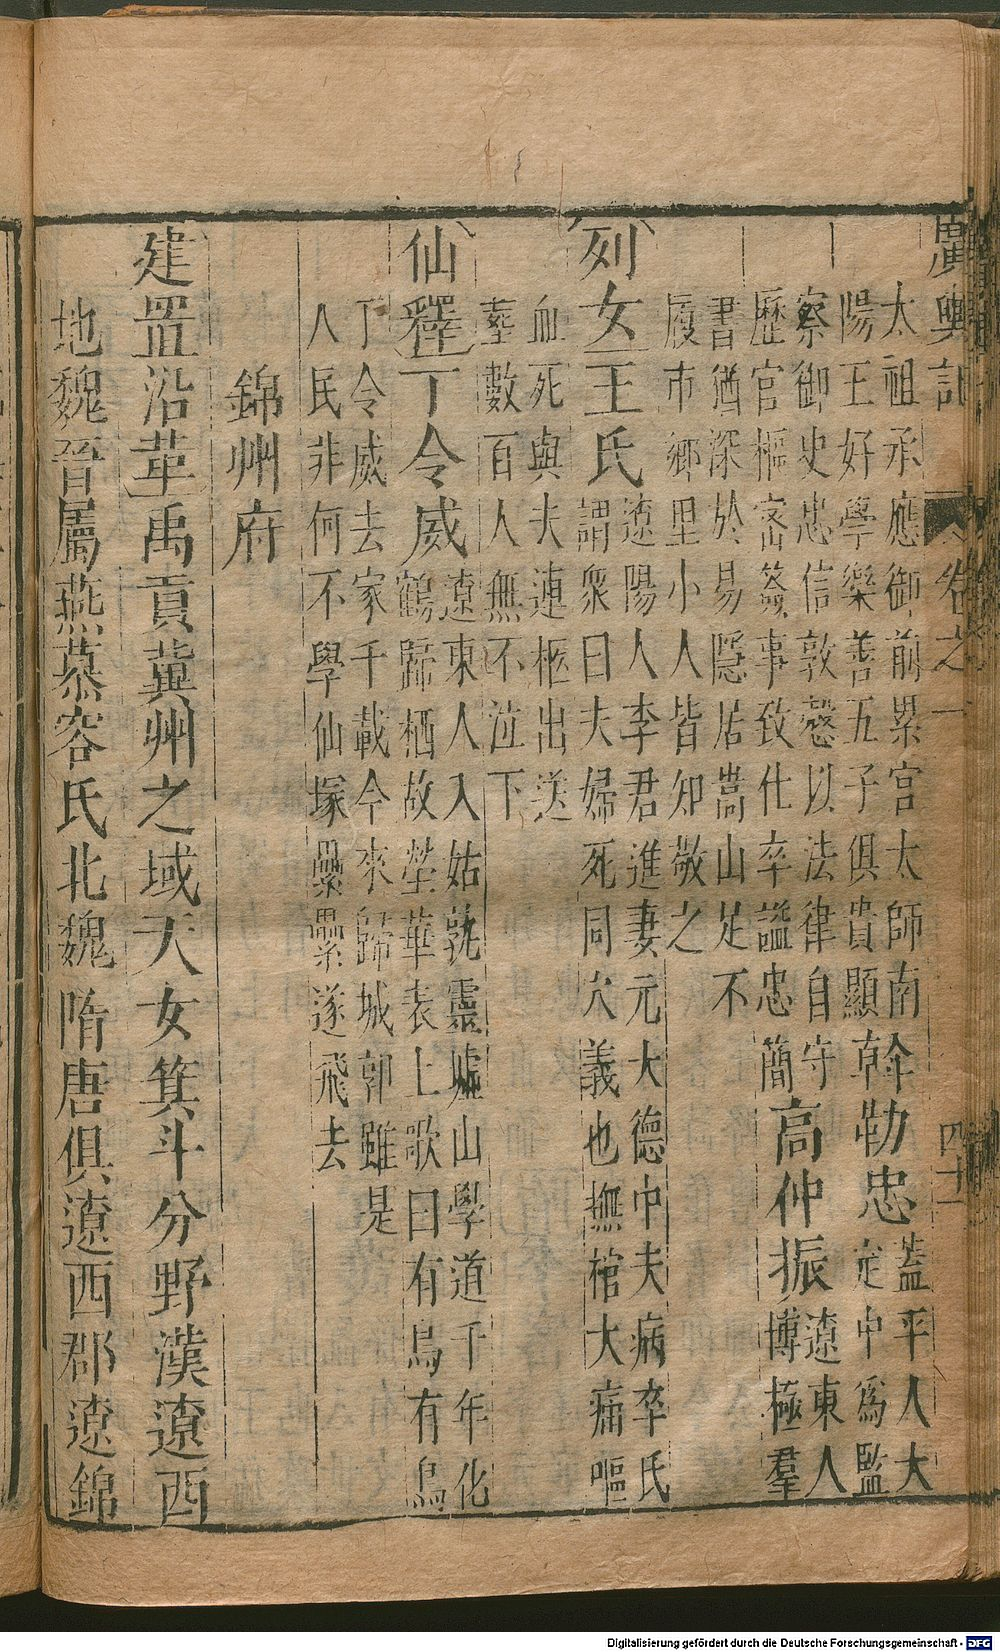 廣輿記 卷之一 四十一
太祖承應御前累官太師南
陽王好學樂善五子俱貴顯
斡勒忠
蓋平人大
定中爲監
察御史忠信敦慤以法律自守
歷官樞密簽事致仕卒謚忠簡
高仲振
遼東人
博極羣
書猶深於易隱居嵩山足不
履市鄉里小人皆知敬之
列女 王氏
遼陽人李君進妻元大德中夫病卒氏
謂衆曰夫婦死同穴義也撫棺大痛嘔
血死與夫連柩出送
葬數百人無不泣下
仙釋 丁令威
遼東人入姑孰靈墟山學道千年化
鶴歸栖故塋華表上歌曰有鳥有鳥
丁令威去家千載今來歸城郭雖是
人民非何不學仙塚纍纍遂飛去
錦州府
建置沿革 禹貢冀州之域天女箕斗分野漢遼西
地魏晉屬燕慕容氏北魏隋唐俱遼西郡遼錦
Digitalisierung gefördert durch die Deutsche Forschungsgemeinschaft - DFG